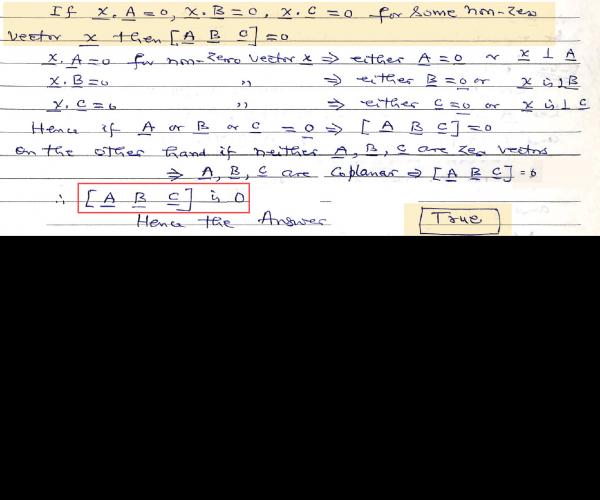 If x. A = 0, x. B = 0, x. C = 0 for some non-zero
vector x then [A B C] = 0
x. A = 0 for non-zero vector x ⇒ either A = 0 or x ⊥ A
x. B = 0 ,, ⇒ either B = 0 or x is ⊥ B
x. C = 0 ,, ⇒ either C = 0 or x is ⊥ C
Hence if A or B or C = 0 ⇒ [A B C] = 0
on the other hand if neither A, B, C are zero vectors
⇒ A, B, C are coplanar ⇒ [A B C] = 0
∴ [A B C] is 0
Hence the Answer True